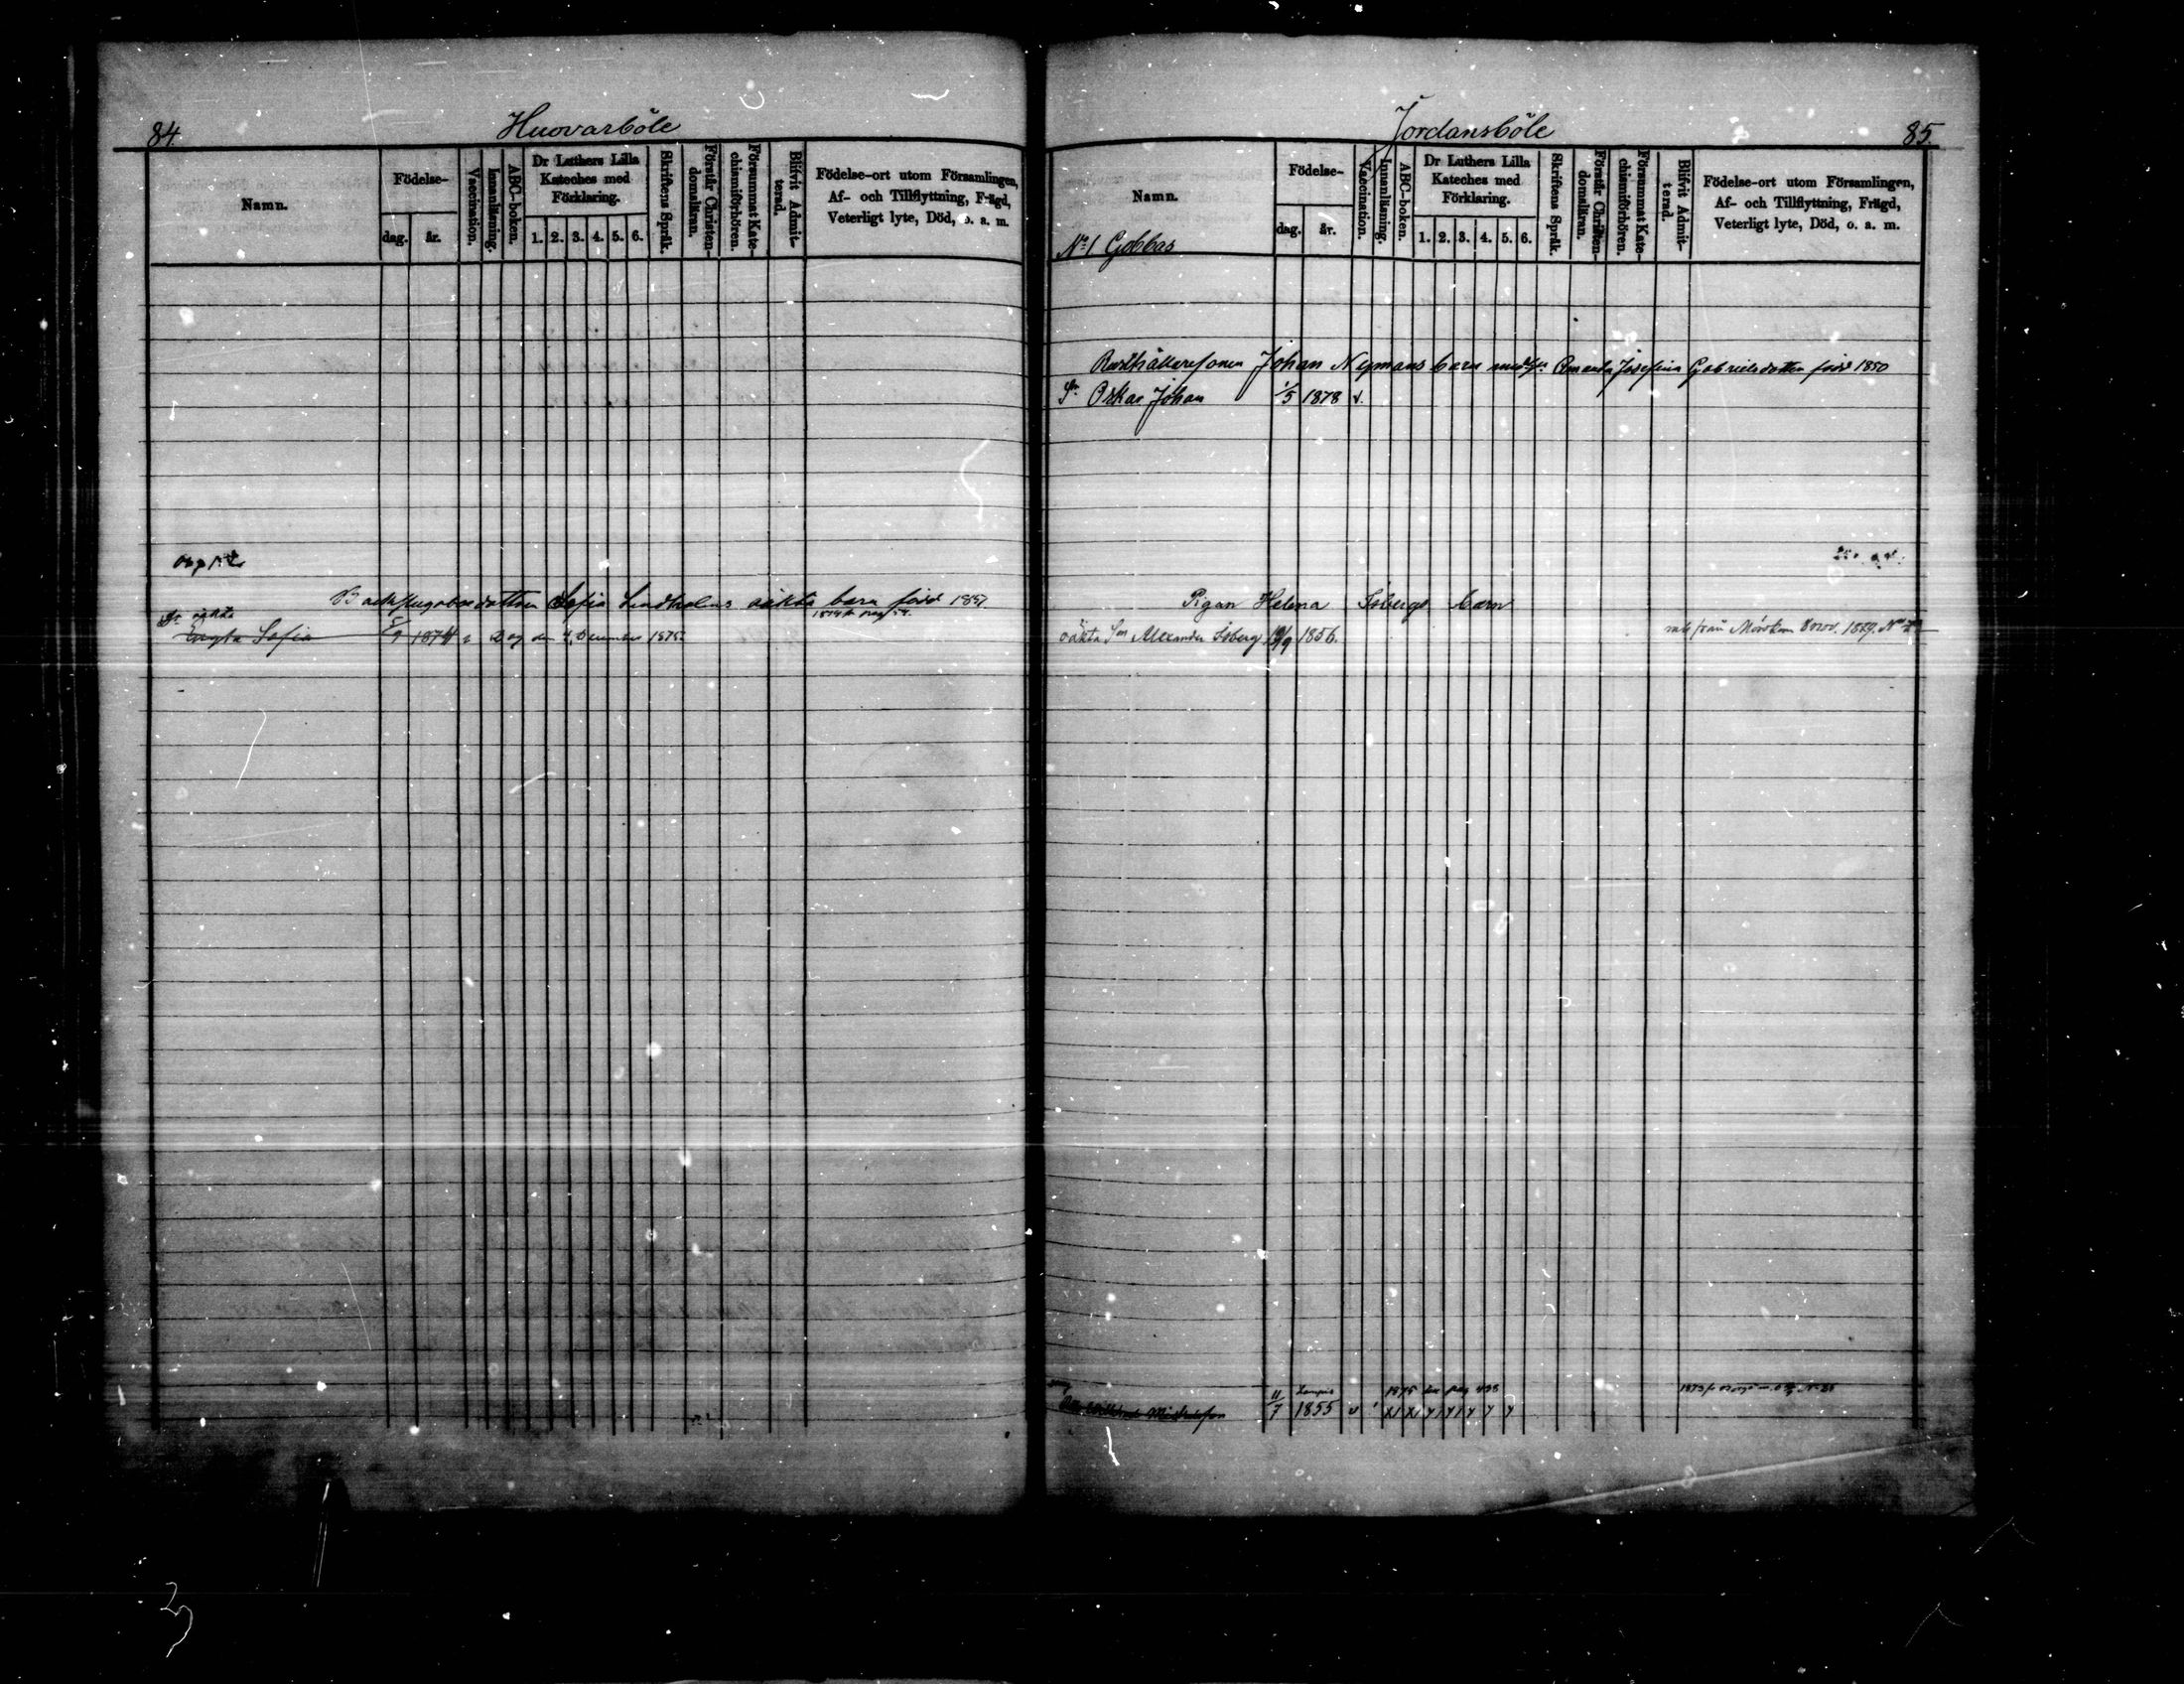 84.
Huovarböle
Namn.
Födelse-
dag.
år.
Vaccination.
Innanläsning.
ABC-boken.
Dr Luthers Lilla
Kateches med
Förklaring.
1. 2. 3. 4. 5. 6.
Skriftens Språk.
Förstår Christen-
domsläran.
Försummat Kate-
chismiförhören.
Blifvit Admit-
terad.
Födelse-ort utom Församlingen,
Af- och Tillflyttning, Frägd,
Veterligt lyte, Död, o. a. m.
dottren Sofia Lindholms oäkta barn född 1857.
Dr oäkta
Sofia 5/9 1874 Dog den 4 December 1875
Jordansböle
85.
Namn.
No 1 Gobbas
Födelse-
dag.
år.
Vaccination.
Innanläsning.
ABC-boken.
Dr Luthers Lilla
Kateches med
Förklaring.
1. 2. 3. 4. 5. 6.
Skriftens Språk.
Förstår Christen-
domsläran.
Försummat Kate-
chismiförhören.
Blifvit Admit-
terad.
Födelse-ort utom Församlingen,
Af- och Tillflyttning, Frägd,
Veterligt lyte, Död, o. a. m.
Rusthållaresonen Johan Nymans barn med Amanda Josefina Gabrielsdotter född 1850
Sn Oskar Johan 1/5 1878 v.
Pigan Helena Isbergs barn
oäkta Sn Alexander Isberg 1856.
11/7 1855 v